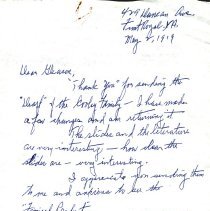 429 Duncan Ave.
Front Royal, VA.
May 5, 1979
Dear Eleanor,
"Thank You" for sending the
of the Godey family - I have made
a few changes and am returning it
The slides and the literature
are very interesting - how clear the
slides are - very interesting.
I appreciate you sending them
to me and anxious to see the